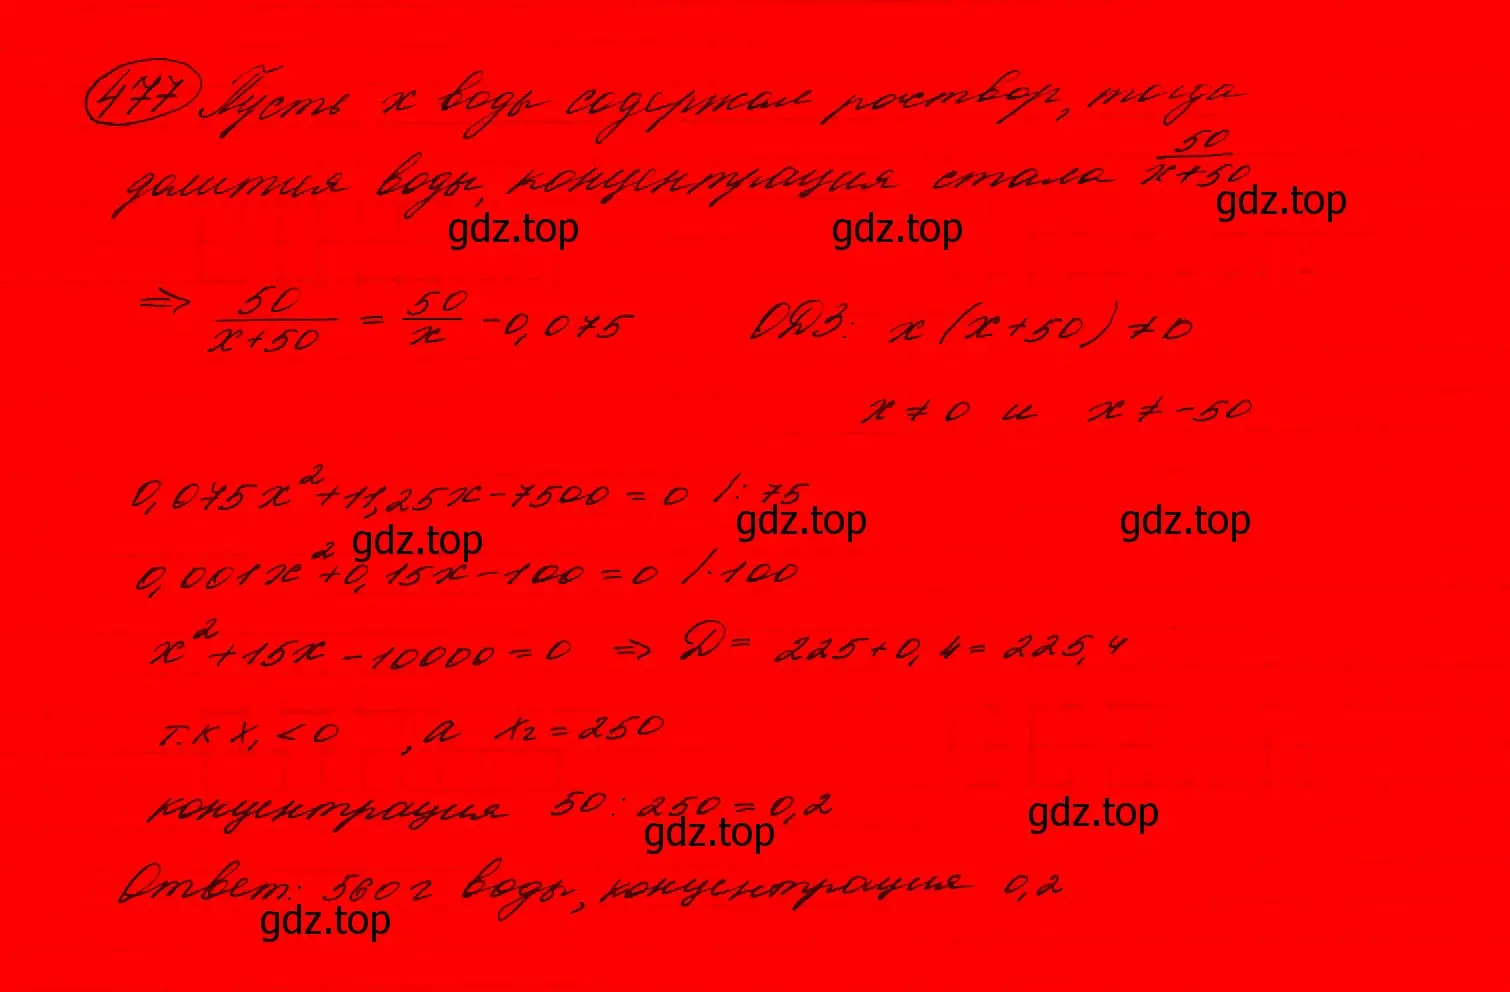 477 Пусть x воды содержал раствор, тогда
долития воды, концентрация стала 50/(x+50)
gdz.top gdz.top gdz.top
=> 50/(x+50) = 50/x - 0,075 ОДЗ: x(x+50) ≠ 0
x ≠ 0 и x ≠ -50
0,075x² + 11,25x - 7500 = 0 /: 75
gdz.top gdz.top gdz.top
0,001x² + 0,15x - 100 = 0 /· 100
x² + 15x - 10000 = 0 => D = 225 + 0,4 = 225,4
т.к x₁ < 0, а x₂ = 250
концентрация 50 : 250 = 0,2
gdz.top gdz.top
Ответ: 560 г воды, концентрация 0,2
gdz.top